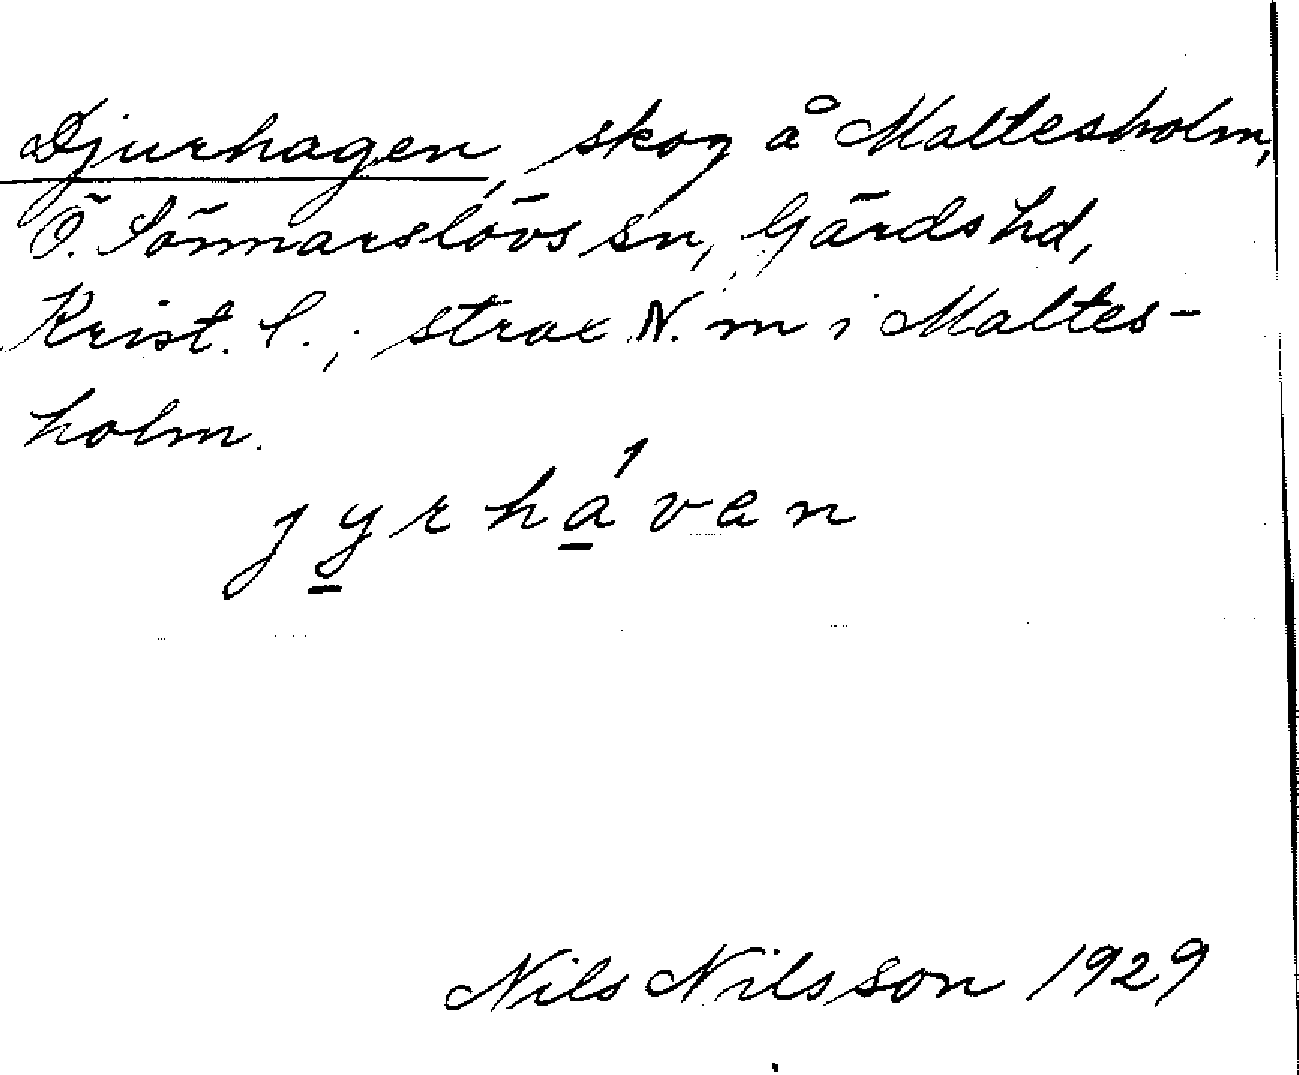 Djurhagen, skog å Maltesholm,
Ö. Sönnarslövs sn, Gärds hd,
Krist. l.; strax N. m i Maltes-
holm.
jyrhávan
Nils Nilsson 1929